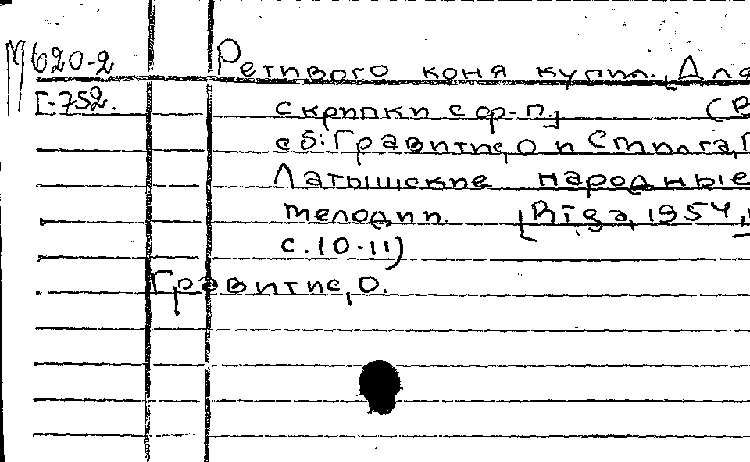 М620-2 Ретивого коня купил. [Для
Г-752. скрипки с ор-п.] (В
сб: Гравитис, О и Стилга, Г
Латышские народные
мелодии. [Rīga, 1954,
с. 10-11)
Гравитис, О.